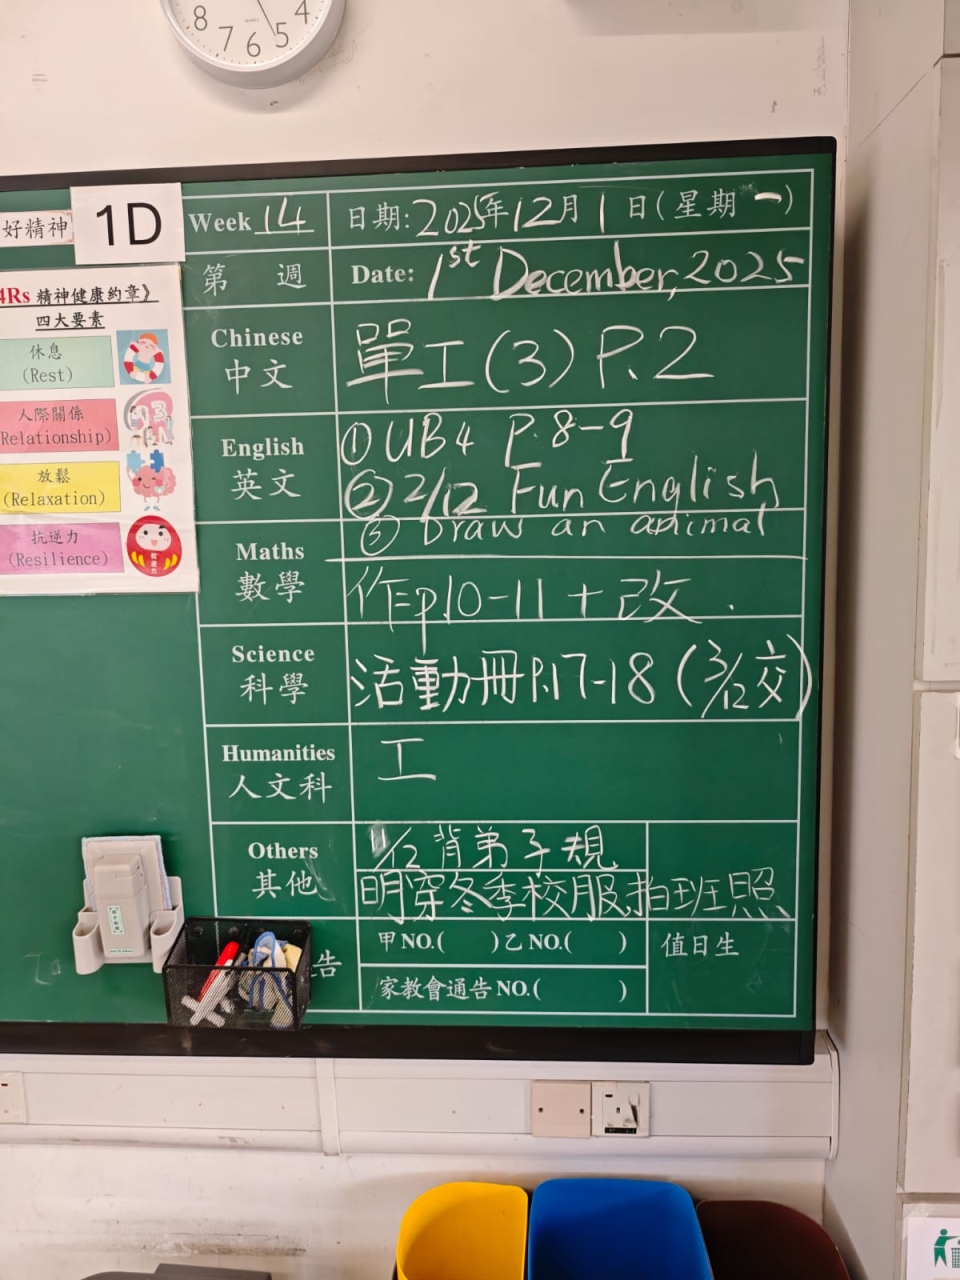 8 7 6 5 4
QUARTZ
好精神
1D
4Rs 精神健康約章》
四大要素
休息
(Rest)
人際關係
(Relationship)
放鬆
(Relaxation)
抗逆力
(Resilience)
Week 14 日期: 2025年12月1日(星期一)
第 週 Date: 1st December, 2025
Chinese
中文
單工(3) P.2
English
英文
① UB4 P.8-9
② 2/12 Fun English
③ Draw an animal
Maths
數學
作p.10-11 + 改.
Science
科學
活動冊P.17-18 (3/12交)
Humanities
人文科
工
Others
其他
1/12 背弟子規
明穿冬季校服,拍班照
告
甲 NO.( ) 乙 NO.( )
家教會通告 NO.( )
值日生